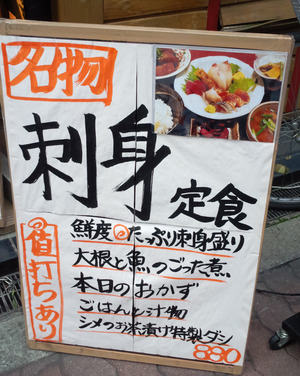 名物
刺身
定食
の値打ちあり
鮮度◎たっぷり刺身盛り
大根と魚のごった煮
本日のおかず
ごはんと汁物
シメのお茶漬け特製ダシ
880